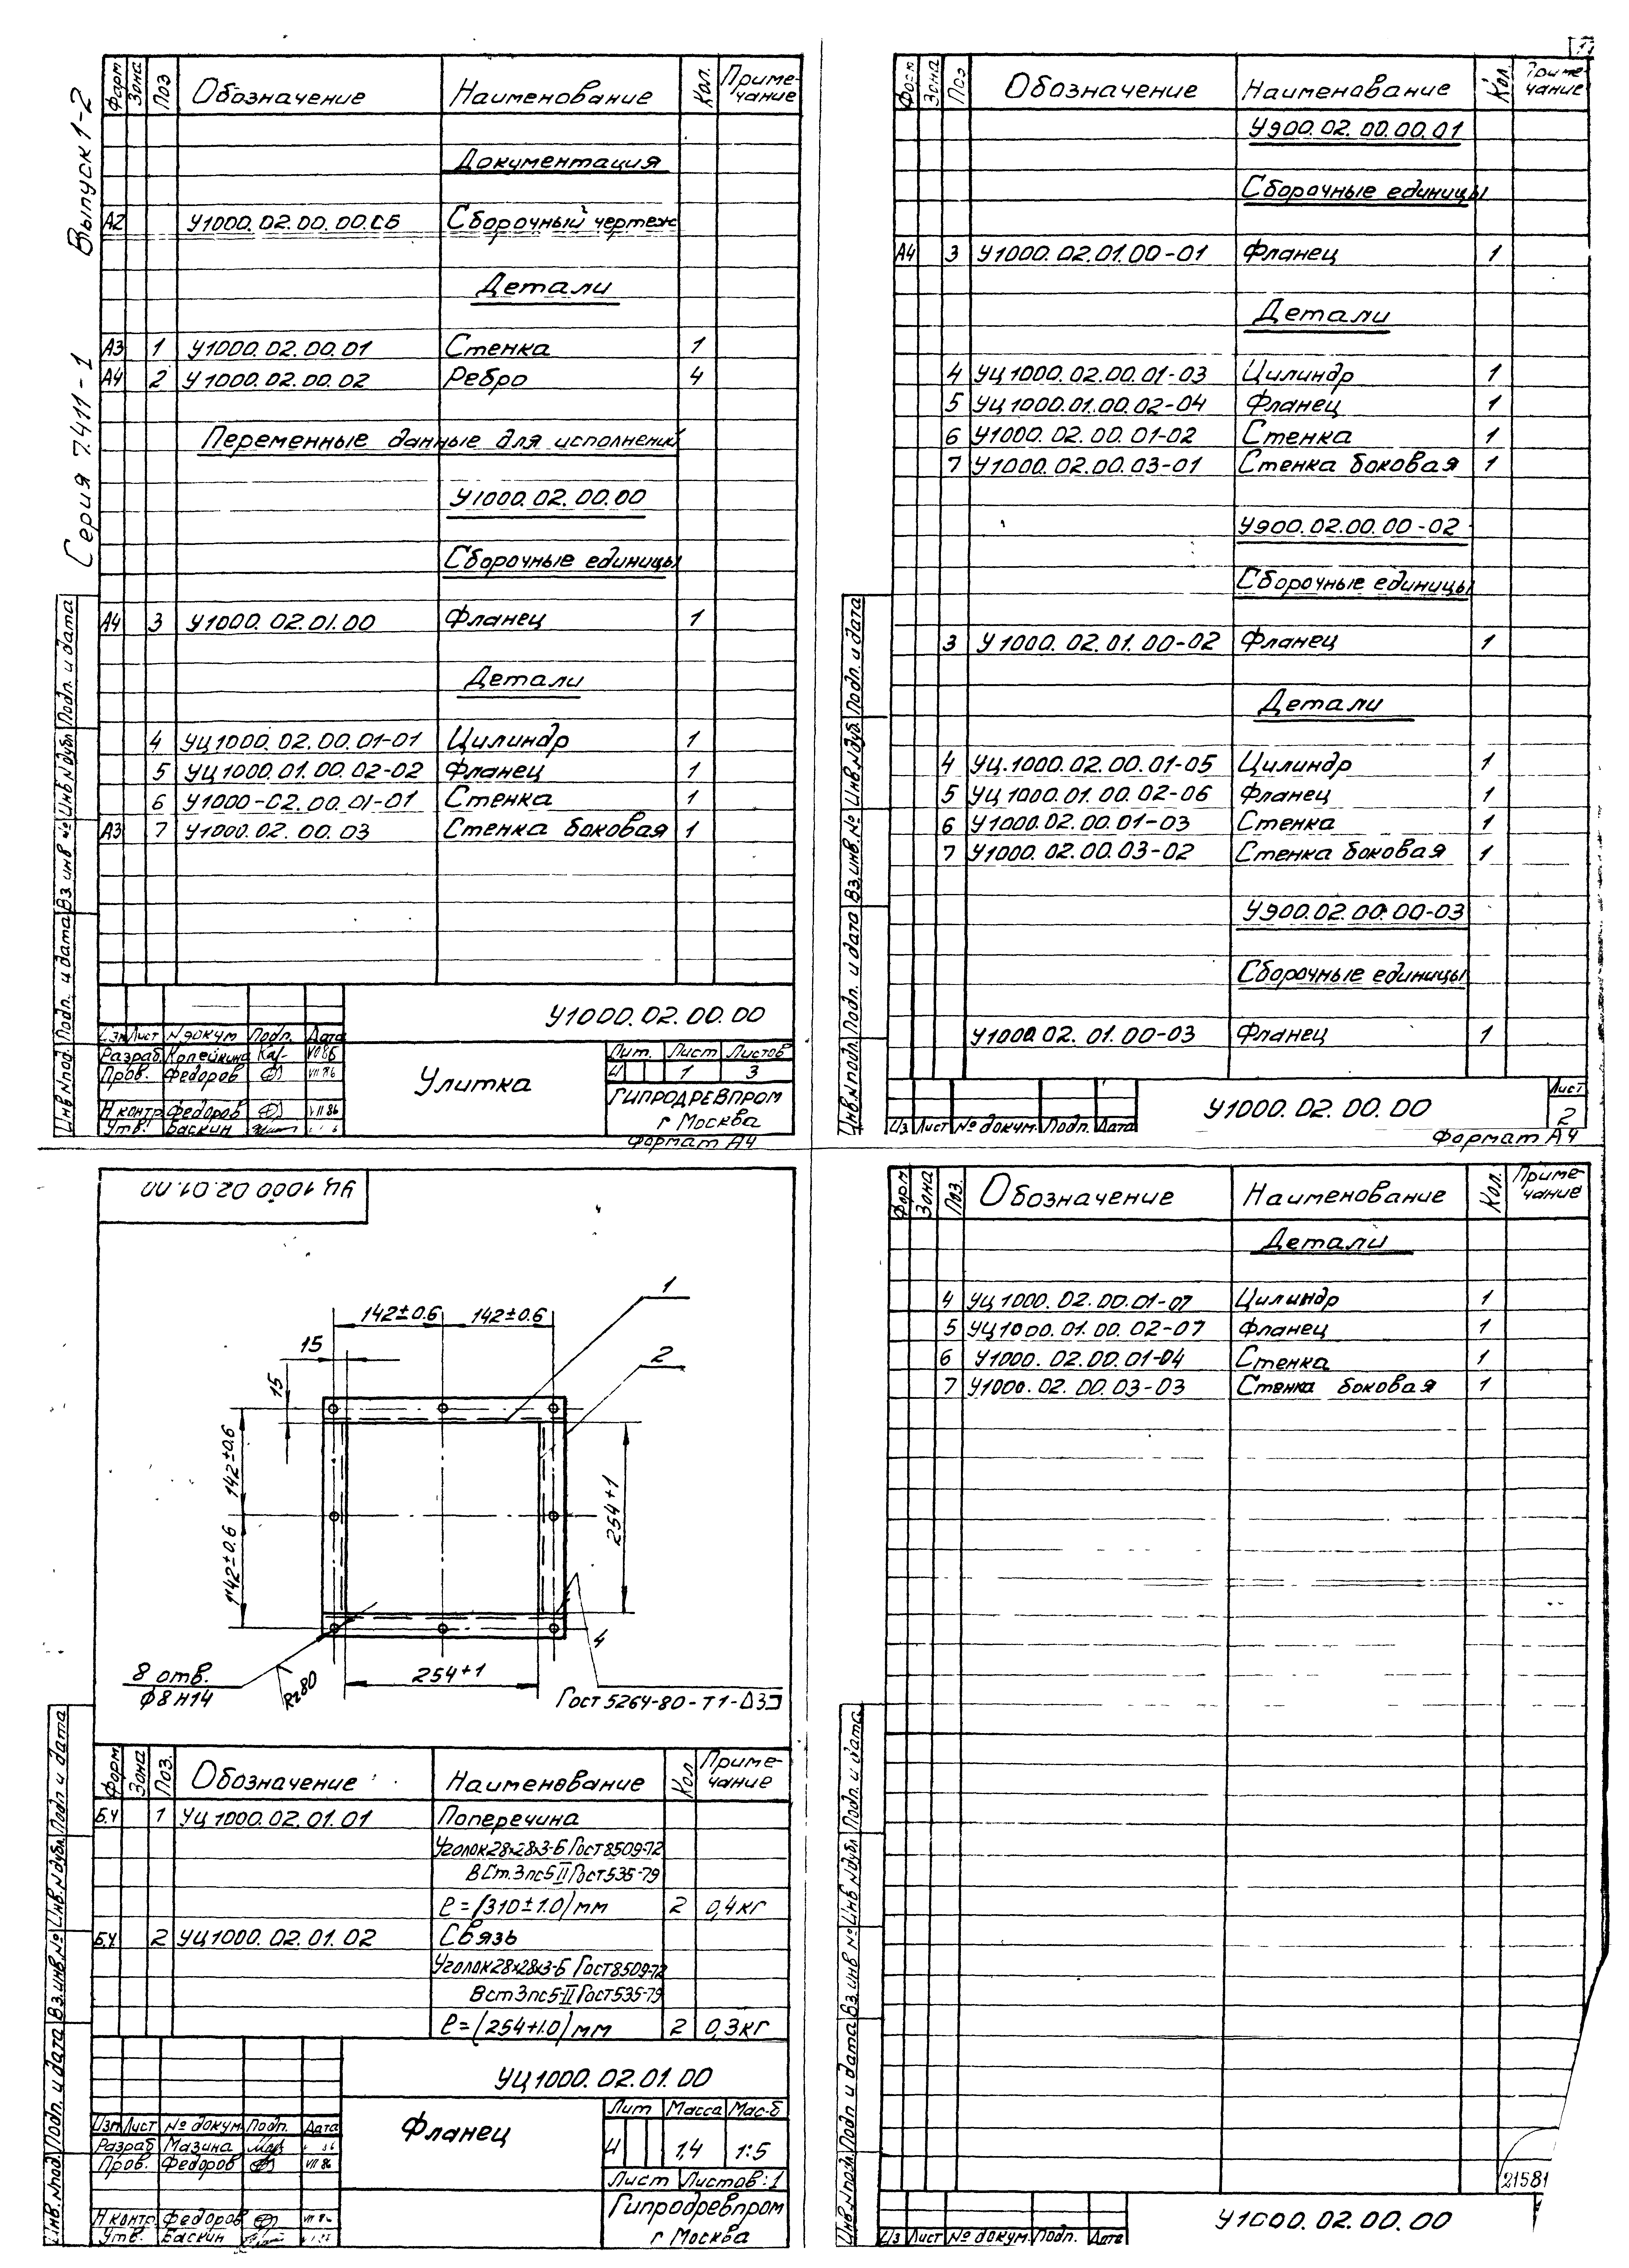 Серия 7.411-1 Выпуск 1-2
Форм Зона Поз Обозначение Наименование Кол. Приме-
чание
Документация
А2 У1000.02.00.00.СБ Сборочный чертеж
Детали
А3 1 У1000.02.00.01 Стенка 1
А4 2 У1000.02.00.02 Ребро 4
Переменные данные для исполнений
У1000.02.00.00
Сборочные единицы
А4 3 У1000.02.01.00 Фланец 1
Детали
4 УЦ1000.02.00.01-01 Цилиндр 1
5 УЦ1000.01.00.02-02 Фланец 1
6 У1000-02.00.01-01 Стенка 1
А3 7 У1000.02.00.03 Стенка боковая 1
У1000.02.00.00
Изм Лист №докум Подп. Дата
Разраб. Копейкина
Пров. Федоров VII 86
Н контр Федоров VII 86
Утв. Баскин
Улитка
Лит. Лист Листов
И 1 3
ГИПРОДРЕВПРОМ
г Москва
Формат А4
Инв.№подл. Подп. и дата Вз.инв № Инв.№дубл. Подп. и дата
Форм Зона Поз Обозначение Наименование Кол. Приме-
чание
У900.02.00.00.01
Сборочные единицы
А4 3 У1000.02.01.00-01 Фланец 1
Детали
4 УЦ1000.02.00.01-03 Цилиндр 1
5 УЦ1000.01.00.02-04 Фланец 1
6 У1000.02.00.01-02 Стенка 1
7 У1000.02.00.03-01 Стенка боковая 1
У900.02.00.00-02
Сборочные единицы
3 У1000.02.01.00-02 Фланец 1
Детали
4 УЦ.1000.02.00.01-05 Цилиндр 1
5 УЦ1000.01.00.02-06 Фланец 1
6 У1000.02.00.01-03 Стенка 1
7 У1000.02.00.03-02 Стенка боковая 1
У900.02.00.00-03
Сборочные единицы
У1000.02.01.00-03 Фланец 1
Из Лист № докум. Подп. Дата
У1000.02.00.00
Лист
2
Формат А4
Инв.№подл. Подп. и дата Вз.инв.№ Инв.№дубл. Подп. и дата
УЦ1000.02.01.00
142±0.6 142±0.6
15
15
1
2
142±0.6
142±0.6
254+1
254+1
4
8 отв.
Ф8Н14
Rz80
Гост 5264-80-Т1-⊿3⊐
Форм Зона Поз. Обозначение Наименование Кол Приме-
чание
Б.Ч 1 УЦ1000.02.01.01 Поперечина
Уголок28х28х3-Б Гост8509-72
ВСт.3пс5-II Гост535-79
ℓ=(310±1.0)мм 2 0,4кг
Б.Ч. 2 УЦ1000.02.01.02 Связь
Уголок28х28х3-Б Гост8509-72
Вст3пс5-II Гост535-79
ℓ=(254+1.0)мм 2 0,3кг
УЦ1000.02.01.00
Изм Лист № докум. Подп. Дата
Разраб Мазина
Пров. Федоров VII 86
Н контр. Федоров
Утв. Баскин
Фланец
Лит Масса Мас-б
И 1,4 1:5
Лист Листов:1
Гипродревпром
г Москва
Инв.№под. Подп. и дата Вз.инв.№ Инв.№дубл. Подп и дата
Форм Зона Поз. Обозначение Наименование Кол. Приме-
чание
Детали
4 УЦ1000.02.00.01-07 Цилиндр 1
5 УЦ1000.01.00.02-07 Фланец 1
6 У1000.02.00.01-04 Стенка 1
7 У1000.02.00.03-03 Стенка боковая 1
21581
Из Лист № докум. Подп. Дата
У1000.02.00.00
Инв.№подл. Подп и дата Вз.инв № Инв №дубл. Подп. и дата